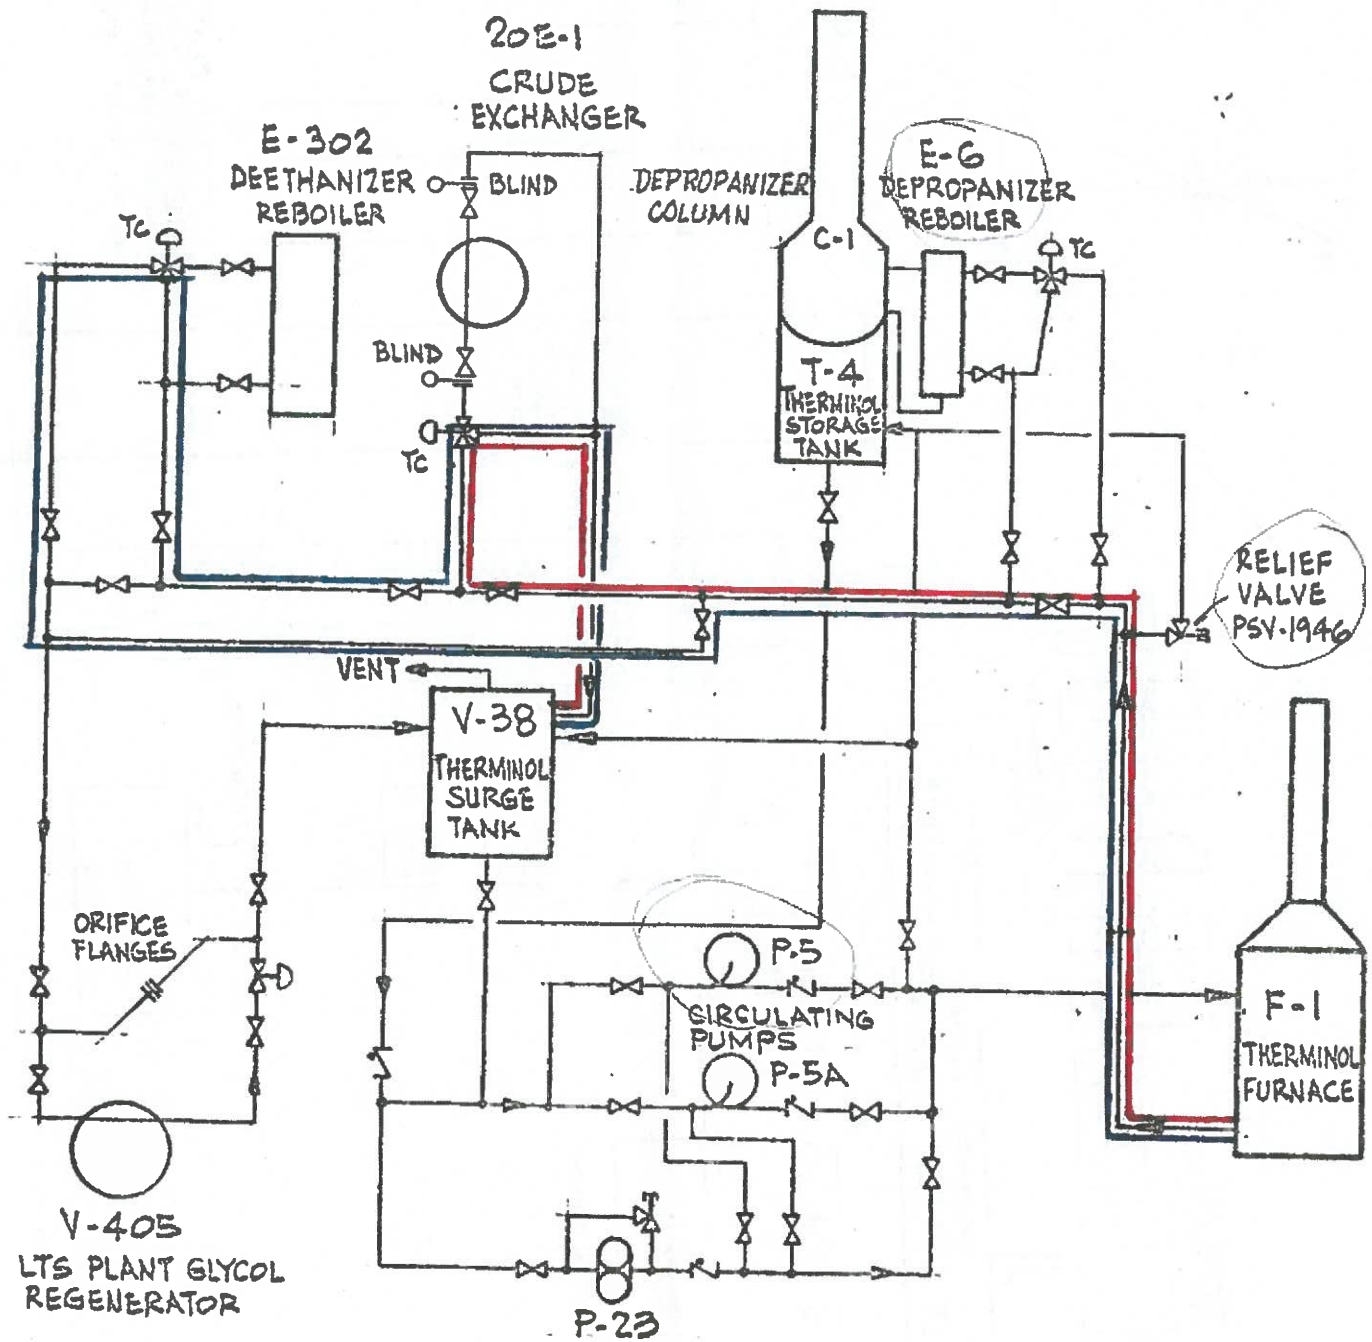 20E-1
CRUDE
EXCHANGER
E-302
DEETHANIZER
REBOILER
BLIND
TC
BLIND
TC
DEPROPANIZER
COLUMN
C-1
E-6
DEPROPANIZER
REBOILER
TC
T-4
THERMINOL
STORAGE
TANK
RELIEF
VALVE
PSV-1946
VENT
V-38
THERMINOL
SURGE
TANK
ORIFICE
FLANGES
P-5
CIRCULATING
PUMPS
P-5A
F-1
THERMINOL
FURNACE
V-405
LTS PLANT GLYCOL
REGENERATOR
P-23